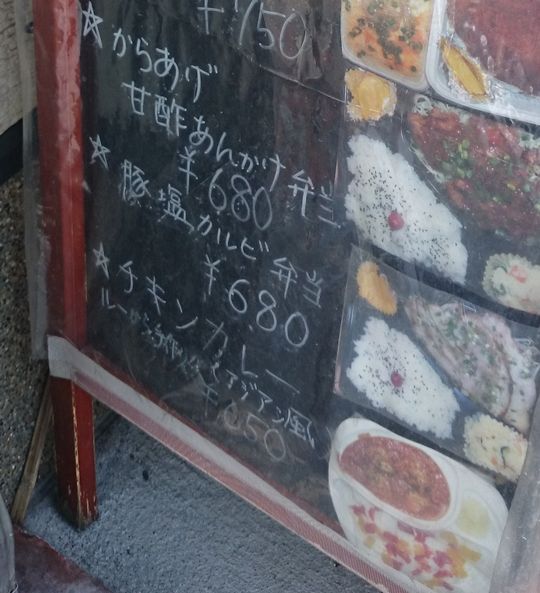 ¥750
☆からあげ
甘酢あんかけ弁当
¥680
☆豚塩カルビ弁当
¥680
☆チキンカレー
ルーから手作り アジアン風
¥650